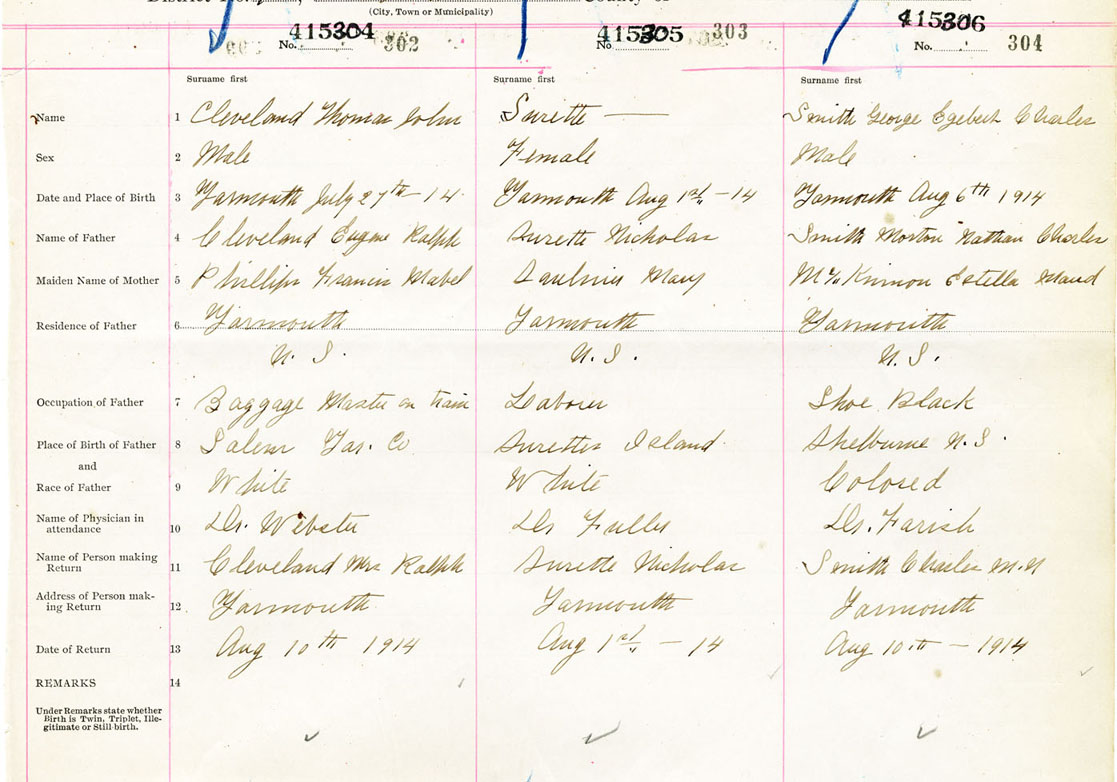 (City, Town or Municipality)
415304 415305 415306
No. 302 No. 303 No. 304
Surname first Surname first Surname first
Name 1 Cleveland Thomas John Surette — Smith George Egebert Charles
Sex 2 Male Female Male
Date and Place of Birth 3 Yarmouth July 27th - 14 Yarmouth Aug 1st - 14 Yarmouth Aug 6th 1914
Name of Father 4 Cleveland Eugene Ralph Surette Nicholas Smith Morton Nathan Charles
Maiden Name of Mother 5 Phillips Francis Mabel Saulnier Mary McKinnon Estella Maud
Residence of Father 6 Yarmouth Yarmouth Yarmouth
N. S. N. S. N. S.
Occupation of Father 7 Baggage Master on train Laborer Shoe Black
Place of Birth of Father 8 Salem Yar. Co Surettes Island Shelburne N. S.
and
Race of Father 9 White White Colored
Name of Physician in
attendance 10 Dr. Webster Dr Fuller Dr. Farish
Name of Person making
Return 11 Cleveland Mrs Ralph Surette Nicholas Smith Charles M. N
Address of Person mak-
ing Return 12 Yarmouth Yarmouth Yarmouth
Date of Return 13 Aug 10th 1914 Aug 1st - 14 Aug 10th - 1914
REMARKS 14
Under Remarks state whether
Birth is Twin, Triplet, Ille-
gitimate or Still-birth.